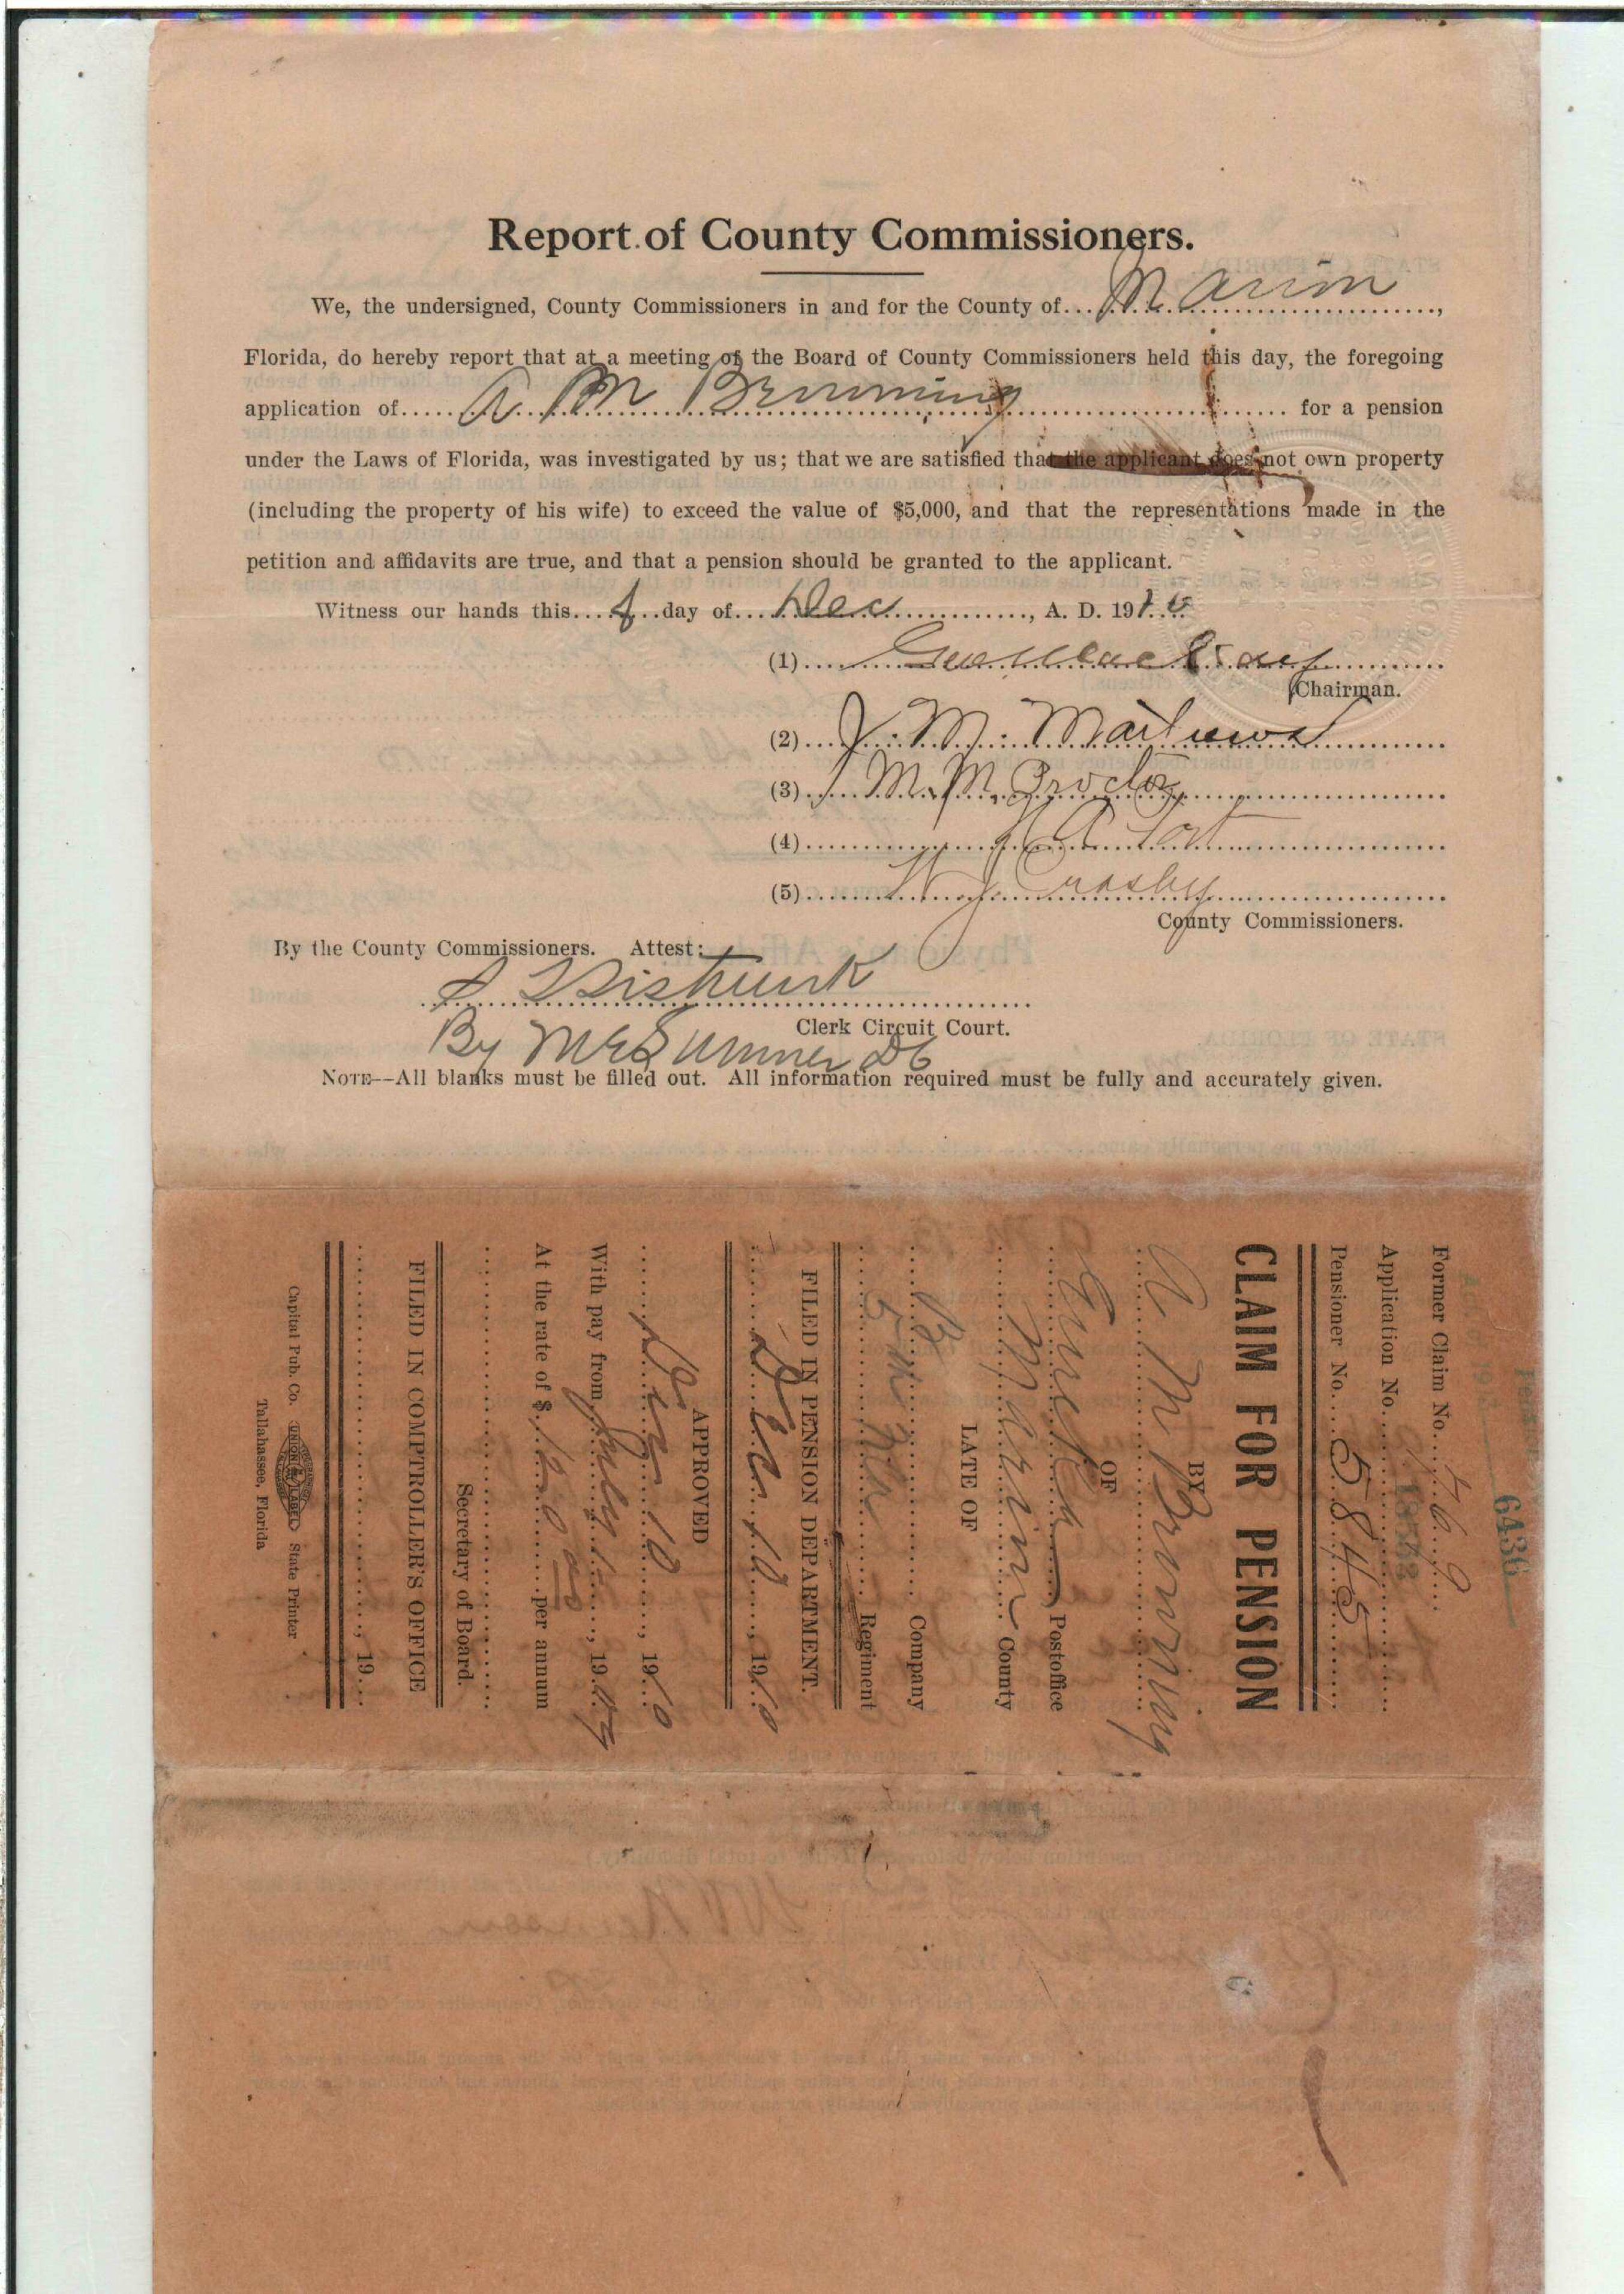 Report of County Commissioners.
We, the undersigned, County Commissioners in and for the County of....Marion....,
Florida, do hereby report that at a meeting of the Board of County Commissioners held this day, the foregoing
application of.....A. M. Brunning..... for a pension
under the Laws of Florida, was investigated by us; that we are satisfied that the applicant does not own property
(including the property of his wife) to exceed the value of $5,000, and that the representations made in the
petition and affidavits are true, and that a pension should be granted to the applicant.
Witness our hands this.... day of....Dec...., A. D. 1910
(1)....Geo MacKay
Chairman.
(2)....J. M. Mathews
(3)....M. M. Proctor
(4)....
(5)....W. J. Crosby
County Commissioners.
By the County Commissioners. Attest:
S T Sistrunk
Clerk Circuit Court.
By M E Sumner DC
NOTE—All blanks must be filled out. All information required must be fully and accurately given.
6436
Former Claim No.
Application No. 18732
Pensioner No. 5845
CLAIM FOR PENSION
BY
A M Brunning
OF
Postoffice
Marion County
LATE OF
B Company
5th Regiment
FILED IN PENSION DEPARTMENT.
Dec 10, 1910
APPROVED
Dec 10, 1910
With pay from July 1, 1909
At the rate of $ 120.00 per annum
Secretary of Board.
FILED IN COMPTROLLER'S OFFICE
, 19
Capital Pub. Co. UNION LABEL State Printer
Tallahassee, Florida